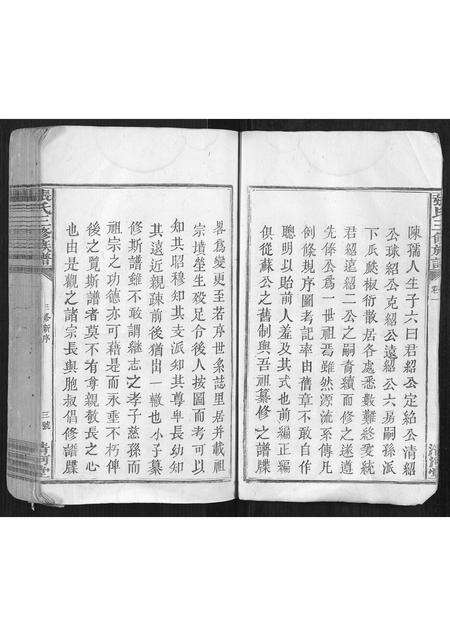 陳孺人生子六曰君紹公定紹公清紹
公球紹公克紹公遠紹公六易嗣孫派
下瓜瓞椒衍散居各處悉難終愛統
君紹遠紹二公之嗣育續而修之遂遵
先係公爲一世祖焉雖然源流系傳凡
例條規序圖考記率由舊章不敢自作
聰明以貽前人羞及其式也前編正編
俱從蘇公之舊制與吾祖纂修之譜牒
畧爲變更至若序世系誌里居并載祖
宗墳塋生殁足令後人按圖而考可以
知其昭穆知其支派知其尊卑長幼知
其遠近親疎前後猶出一轍也小子纂
修斯譜雖不敢謂繼志之孝子慈孫而
祖宗之功德亦可藉是而永垂不朽俾
後之覽斯譜者莫不有尊親敬長之心
也由是觀之諸宗長與胞叔倡修譜牒
張氏三修族譜
三修新序
三號
清河堂